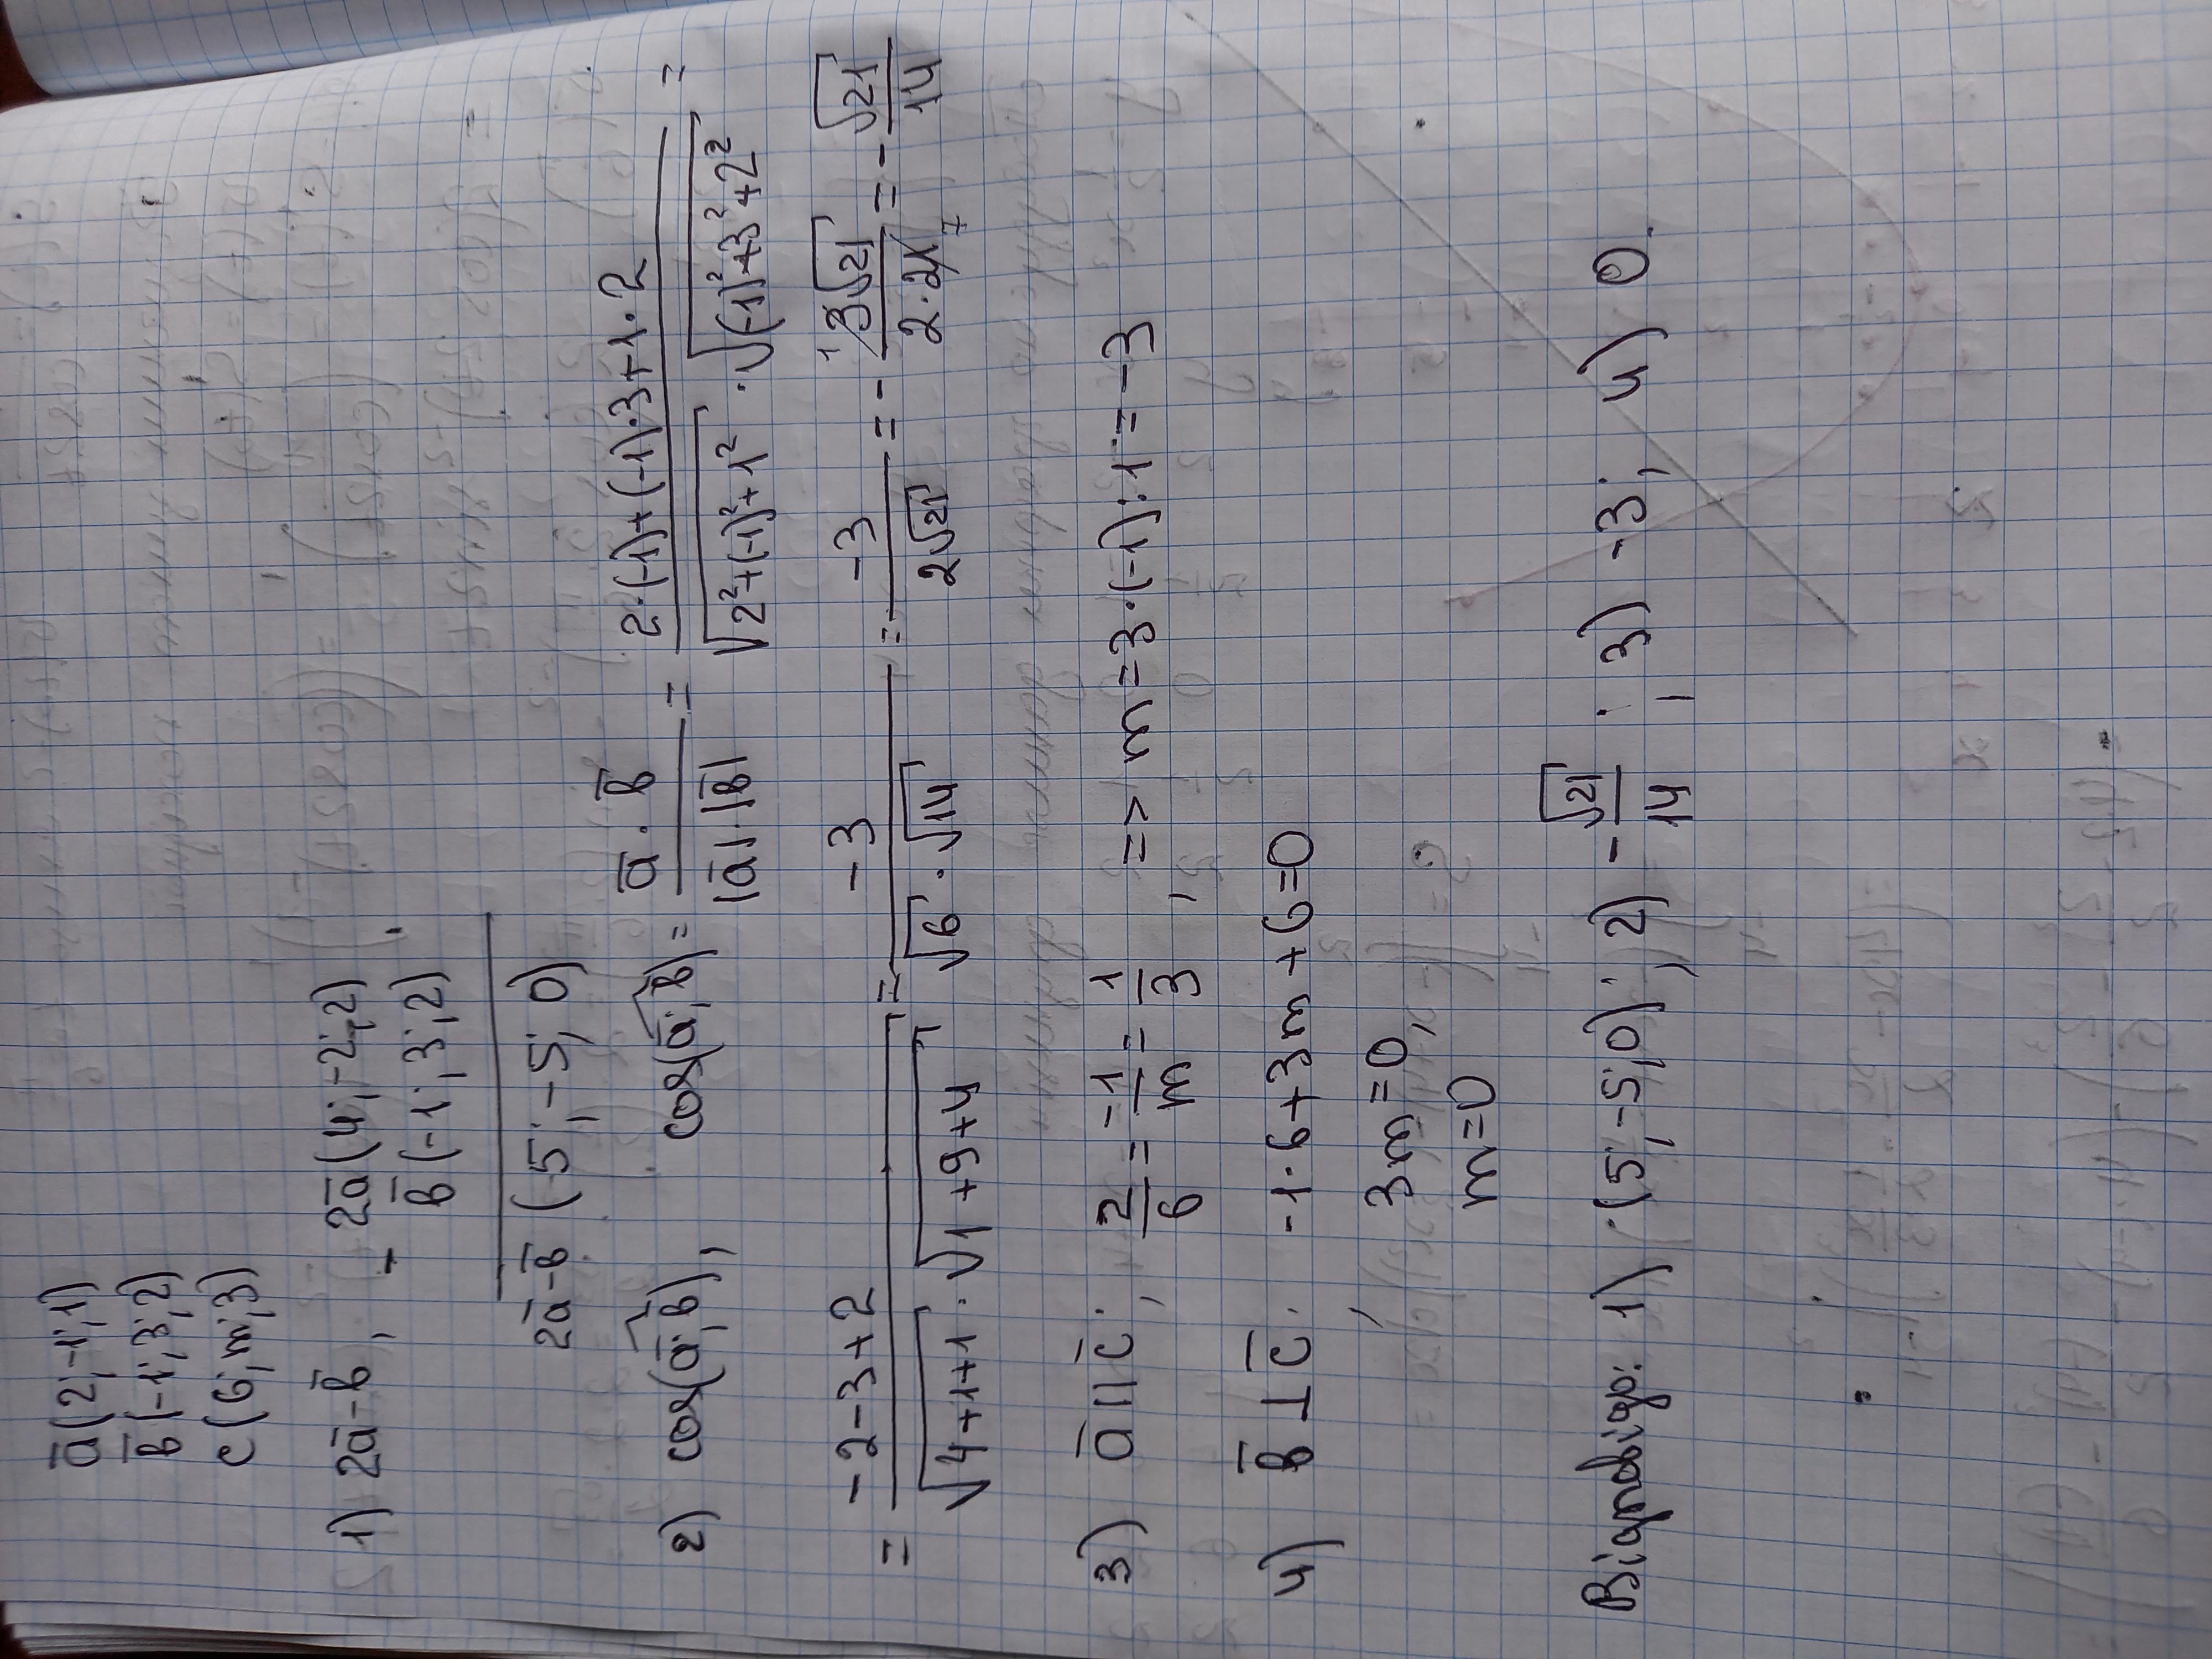 a̅(2;-1;1)
b̅(-1;3;2)
c(6;m;3)
1) 2a̅-b̅, - 2a̅(4;-2;2)
b̅(-1;3;2).
2a̅-b̅ (5;-5;0)
2) cos(a̅;b̅), cos(a̅;b̅) = a̅·b̅ / |a̅|·|b̅| = 2·(-1)+(-1)·3+1·2 / √(2²+(-1)²+1²) · √((-1)²+3²+2²) =
= -2-3+2 / √(4+1+1) · √(1+9+4) = -3 / √6·√14 = -3 / 2√21 = - 3√21 / 2·21 = - √21 / 14
1 7
3) a̅||c̅; 2/6 = -1/m = 1/3, => m=3·(-1):1=-3
4) b̅⊥c̅; -1·6+3m+6=0
3m=0,
m=0
Відповідь: 1) (5;-5;0); 2) - √21/14; 3) -3; 4) 0.